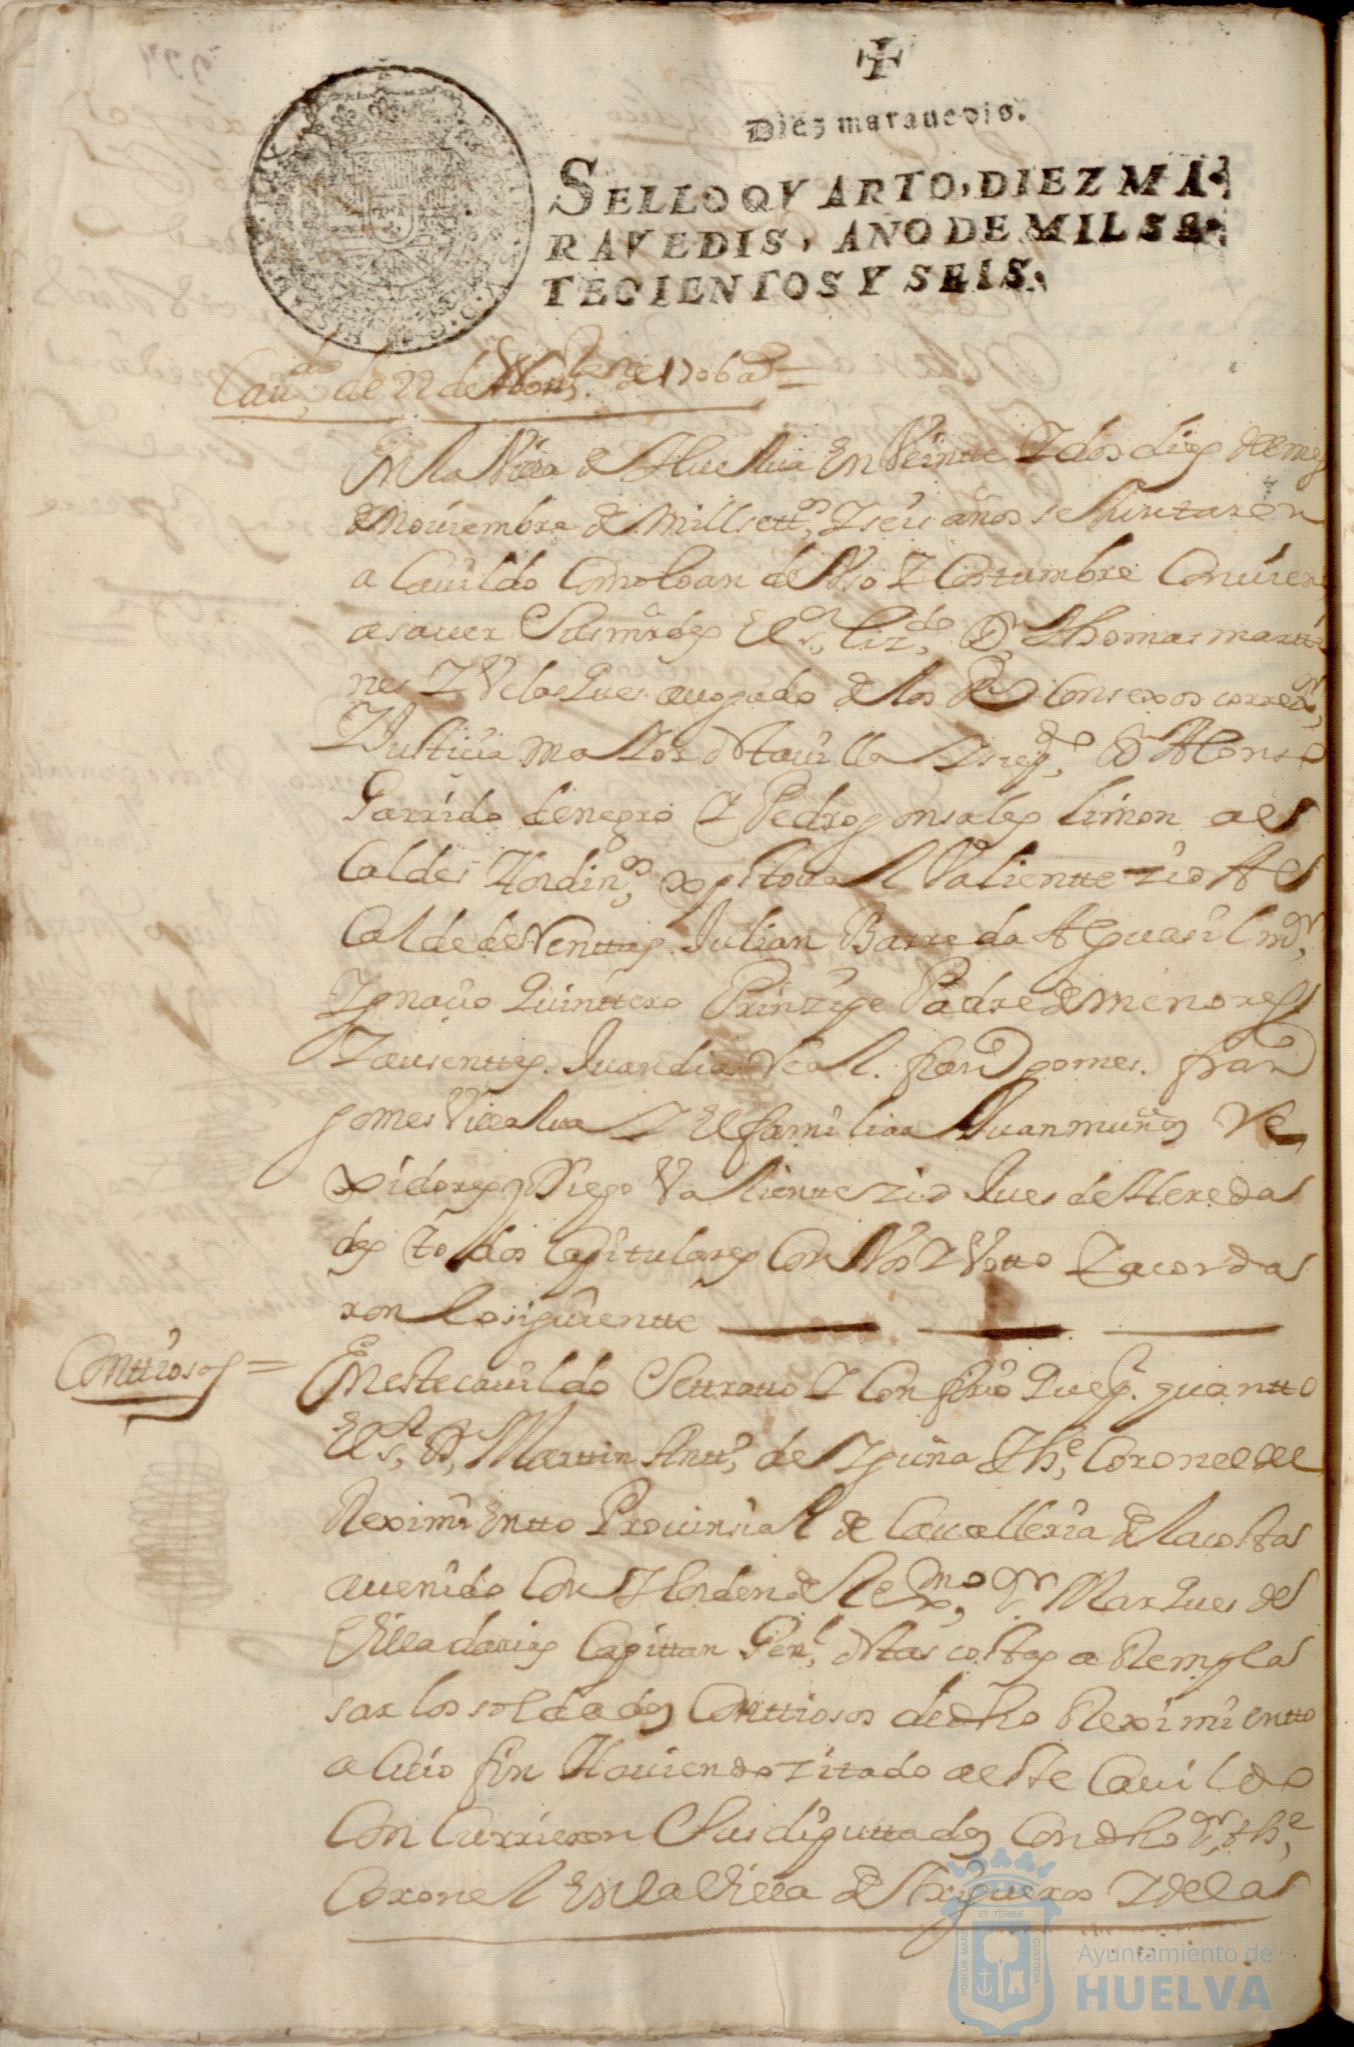 Diez maravedis.
SELLO QVARTO, DIEZ MA-
RAVEDIS, AÑO DE MIL SE-
TECIENTOS Y SEIS.
Cauᵈᵒ de 22 de Nobre de 1706 aˢ =
En la Villa de Huelua En Veintte Y dos dias del mes
de Nouiembre de mill settᵒˢ Y seis años se Juntaron
a Cauildo Como lo an de Vso Y Costumbre Conuiene
a sauer Sus mrdes El Sʳ lizᵈᵒ Dⁿ Thomas martti
nes Y Velasques auogado de los Rˢ Consexos correxᵒʳ
Y Justicia maYor desta uilla Dⁿ Alonso
Garrido de negro Y Pedro gonsales limon al
Caldes Hordinᵒˢ xptoual Valientte zid Al
Calde de Venttas Julian Barreda Alguasil mʳ
Ygnacio Quinttero Prinzipe Padre de menores
Y ausenttes Juan dias Veal. franᶜᵒ gomes. franᶜᵒ
gomes Villalua Y El familiar Juan muños Re
xidores y Diego Valientte zid Jues de Hereda
des todos Capitulares Con Vos Y Votto Y acorda
ron lo siguientte
Conttiosos = En este cauildo Se ttratto Y Confirio Que pʳ quantto
El Sʳ Dⁿ Marttin Anttᵒ de Yguña Thᵉ Coronel del
Reximientto Prouinsial de Caualleria de la costa
a uenido Con Horden del Exᵐᵒ Sʳ Marques de
Villadarias Capittan Genˡ destas costas a Rempla
sar los soldados Conttiosos de dho Reximientto
a Cuio fin Hauiendo zitado a este Cauildo
Concurrieron Sus diputtados Con dho Sʳ thᵉ
Coronel En la Villa de Trigueros Y de la
Ayuntamiento de
HUELVA